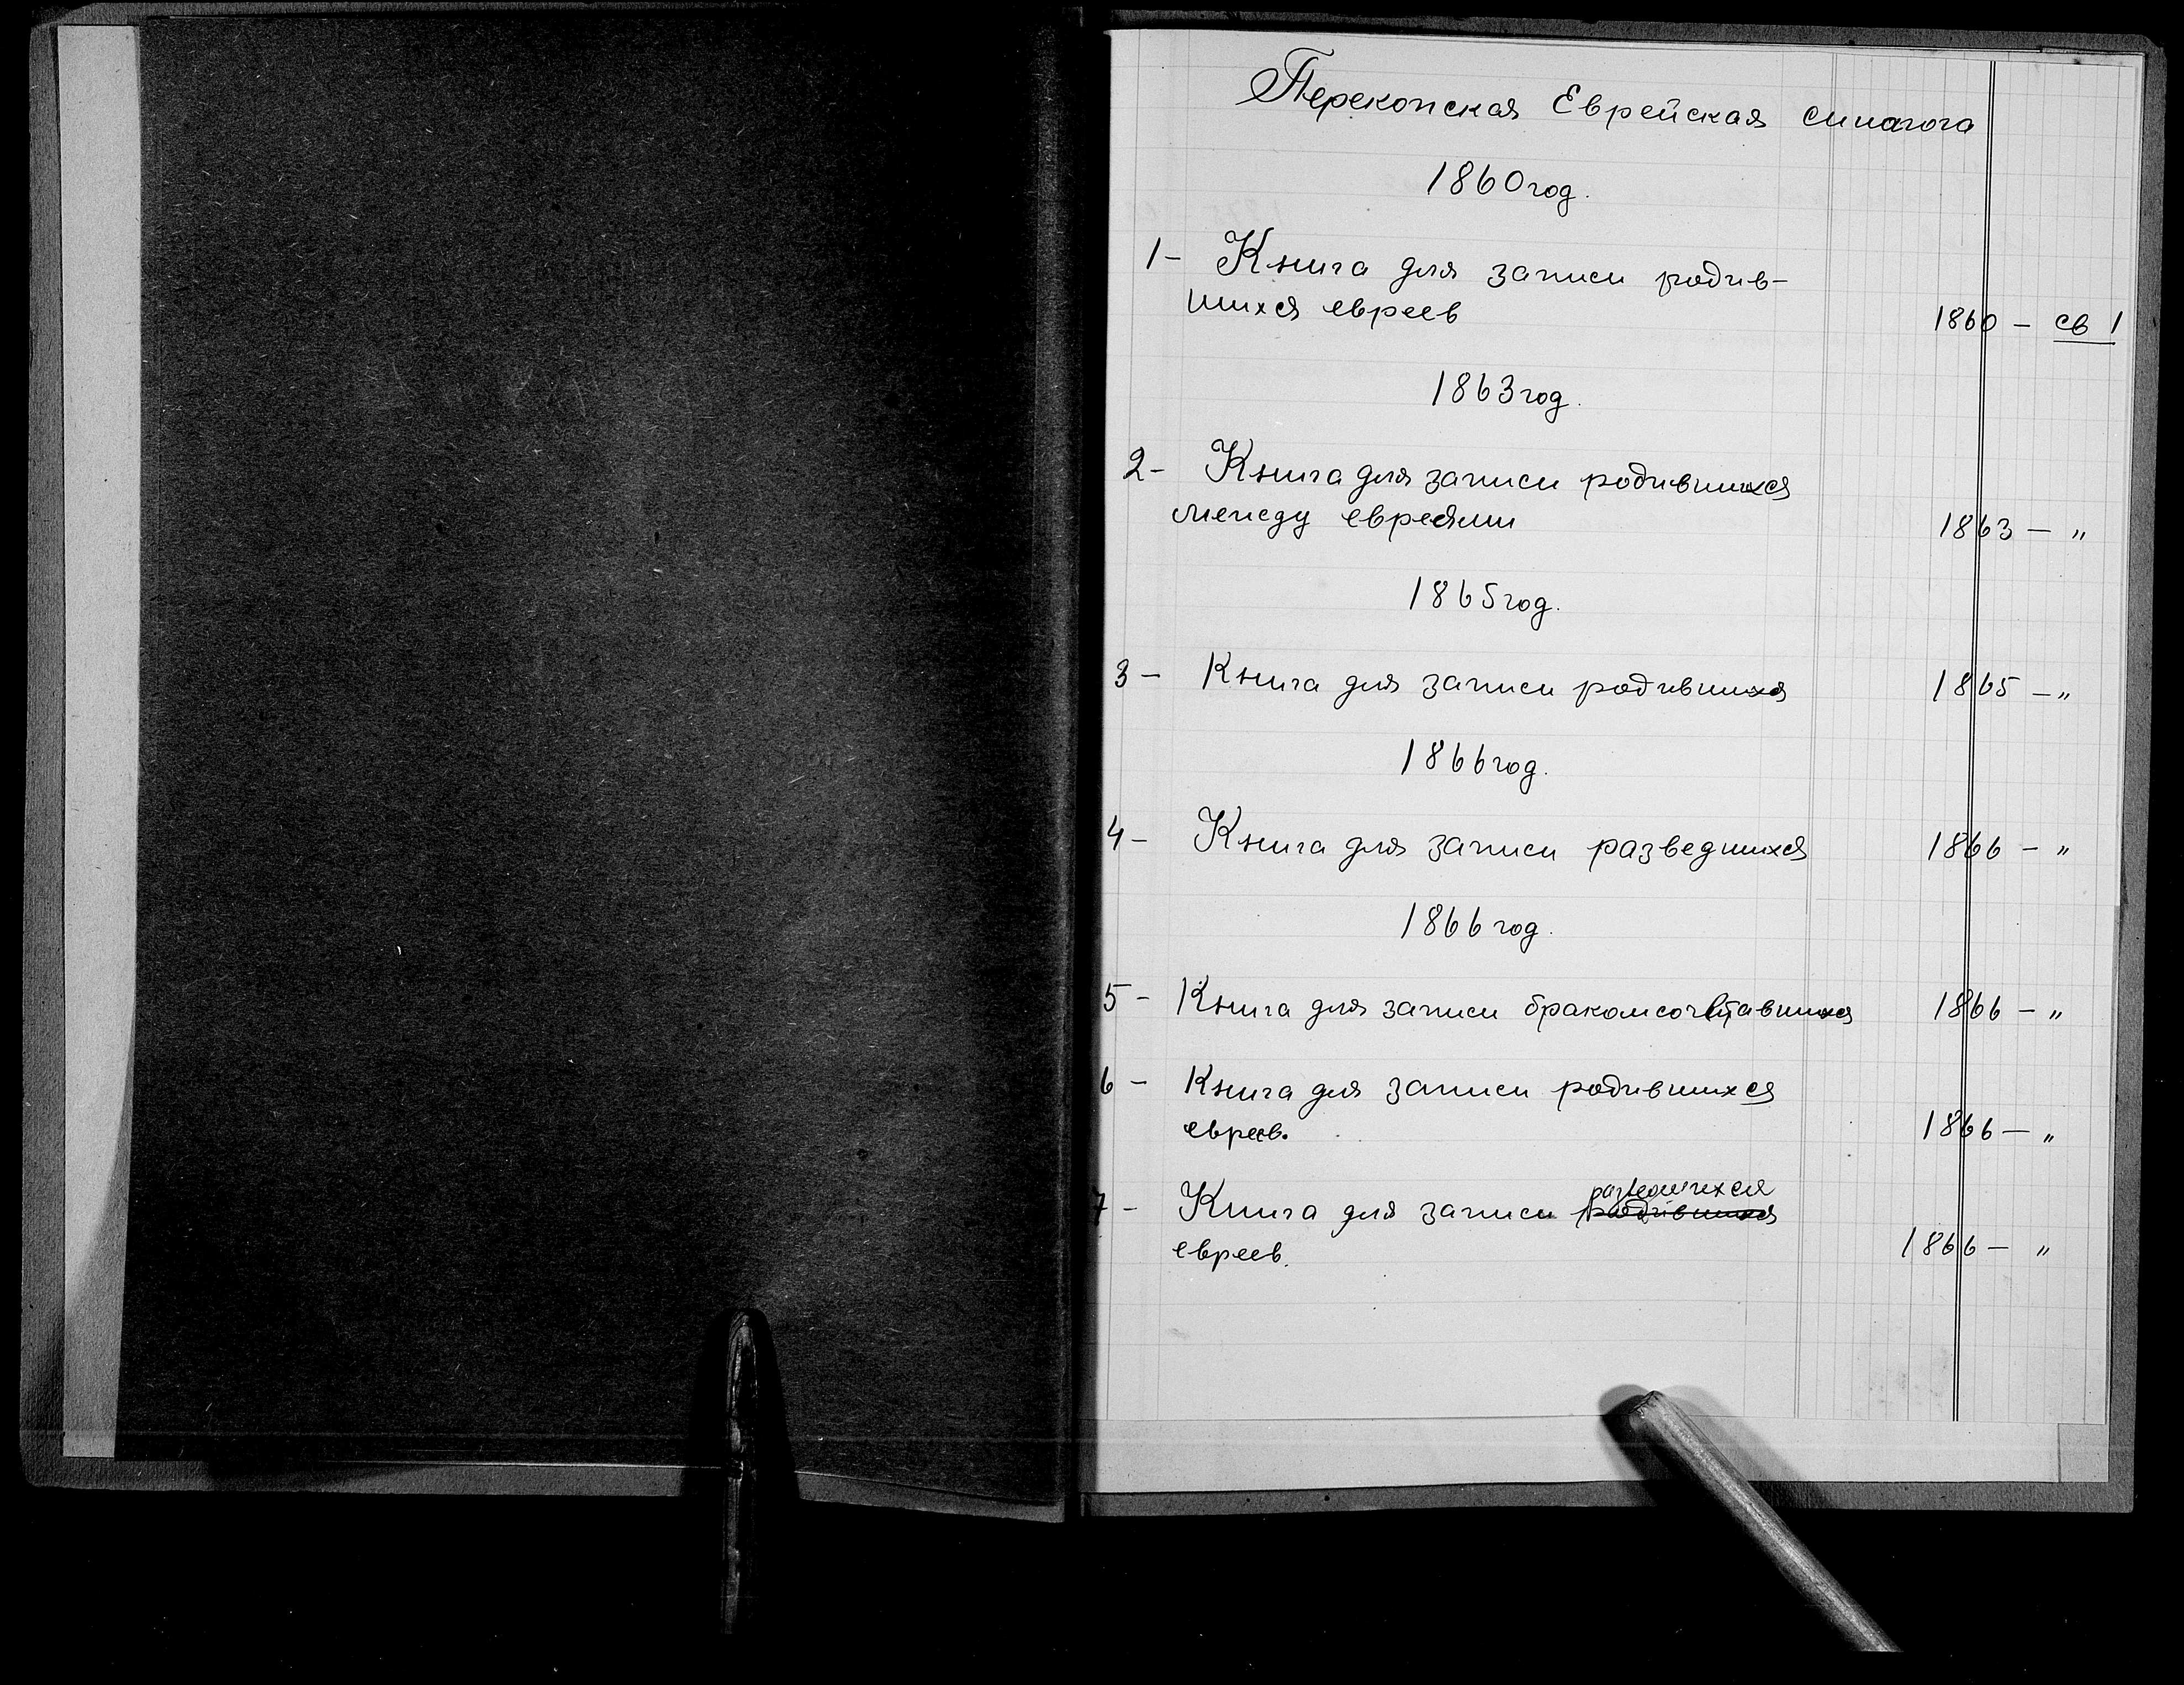 Перекопская Еврейская синагога
1860 год.
1- Книга для записи родив-
шихся евреев 1860 - св 1
1863 год.
2- Книга для записи родившихся
между евреями 1863 - "
1865 год.
3 - Книга для записи родившихся 1865 - "
1866 год.
4 - Книга для записи разведшихся 1866 - "
1866 год.
5 - Книга для записи бракомсочетавшихся 1866 - "
6 - Книга для записи родившихся
евреев. 1866 - "
разведшихся
7 - Книга для записи родившихся
евреев. 1866 - "